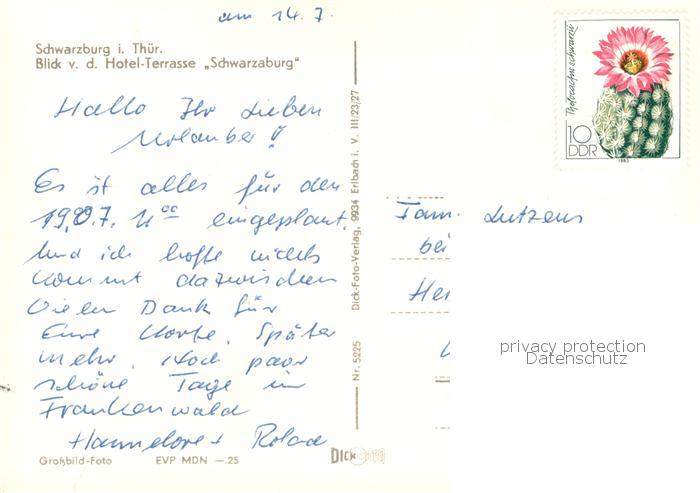 am 14. 7.
Schwarzburg i. Thür.
Blick v. d. Hotel-Terrasse „Schwarzaburg"
Hallo Ihr Lieben
Urlauber!
Es ist alles für den
19.07. 11 00 eingeplant.
Und ich hoffe nichts
kommt dazwischen
Vielen Dank für
Eure Karte. Später
mehr. Noch paar
schöne Tage im
Frankenwald
Hannelore +
Großbild-Foto EVP MDN —.25
Nr. 5225 Dick-Foto-Verlag, 9934 Erlbach i. V. III/23/27
DICK FOTO
10
DDR
1983
Fam. Lutzens
bei
Hei
privacy protection
Datenschutz